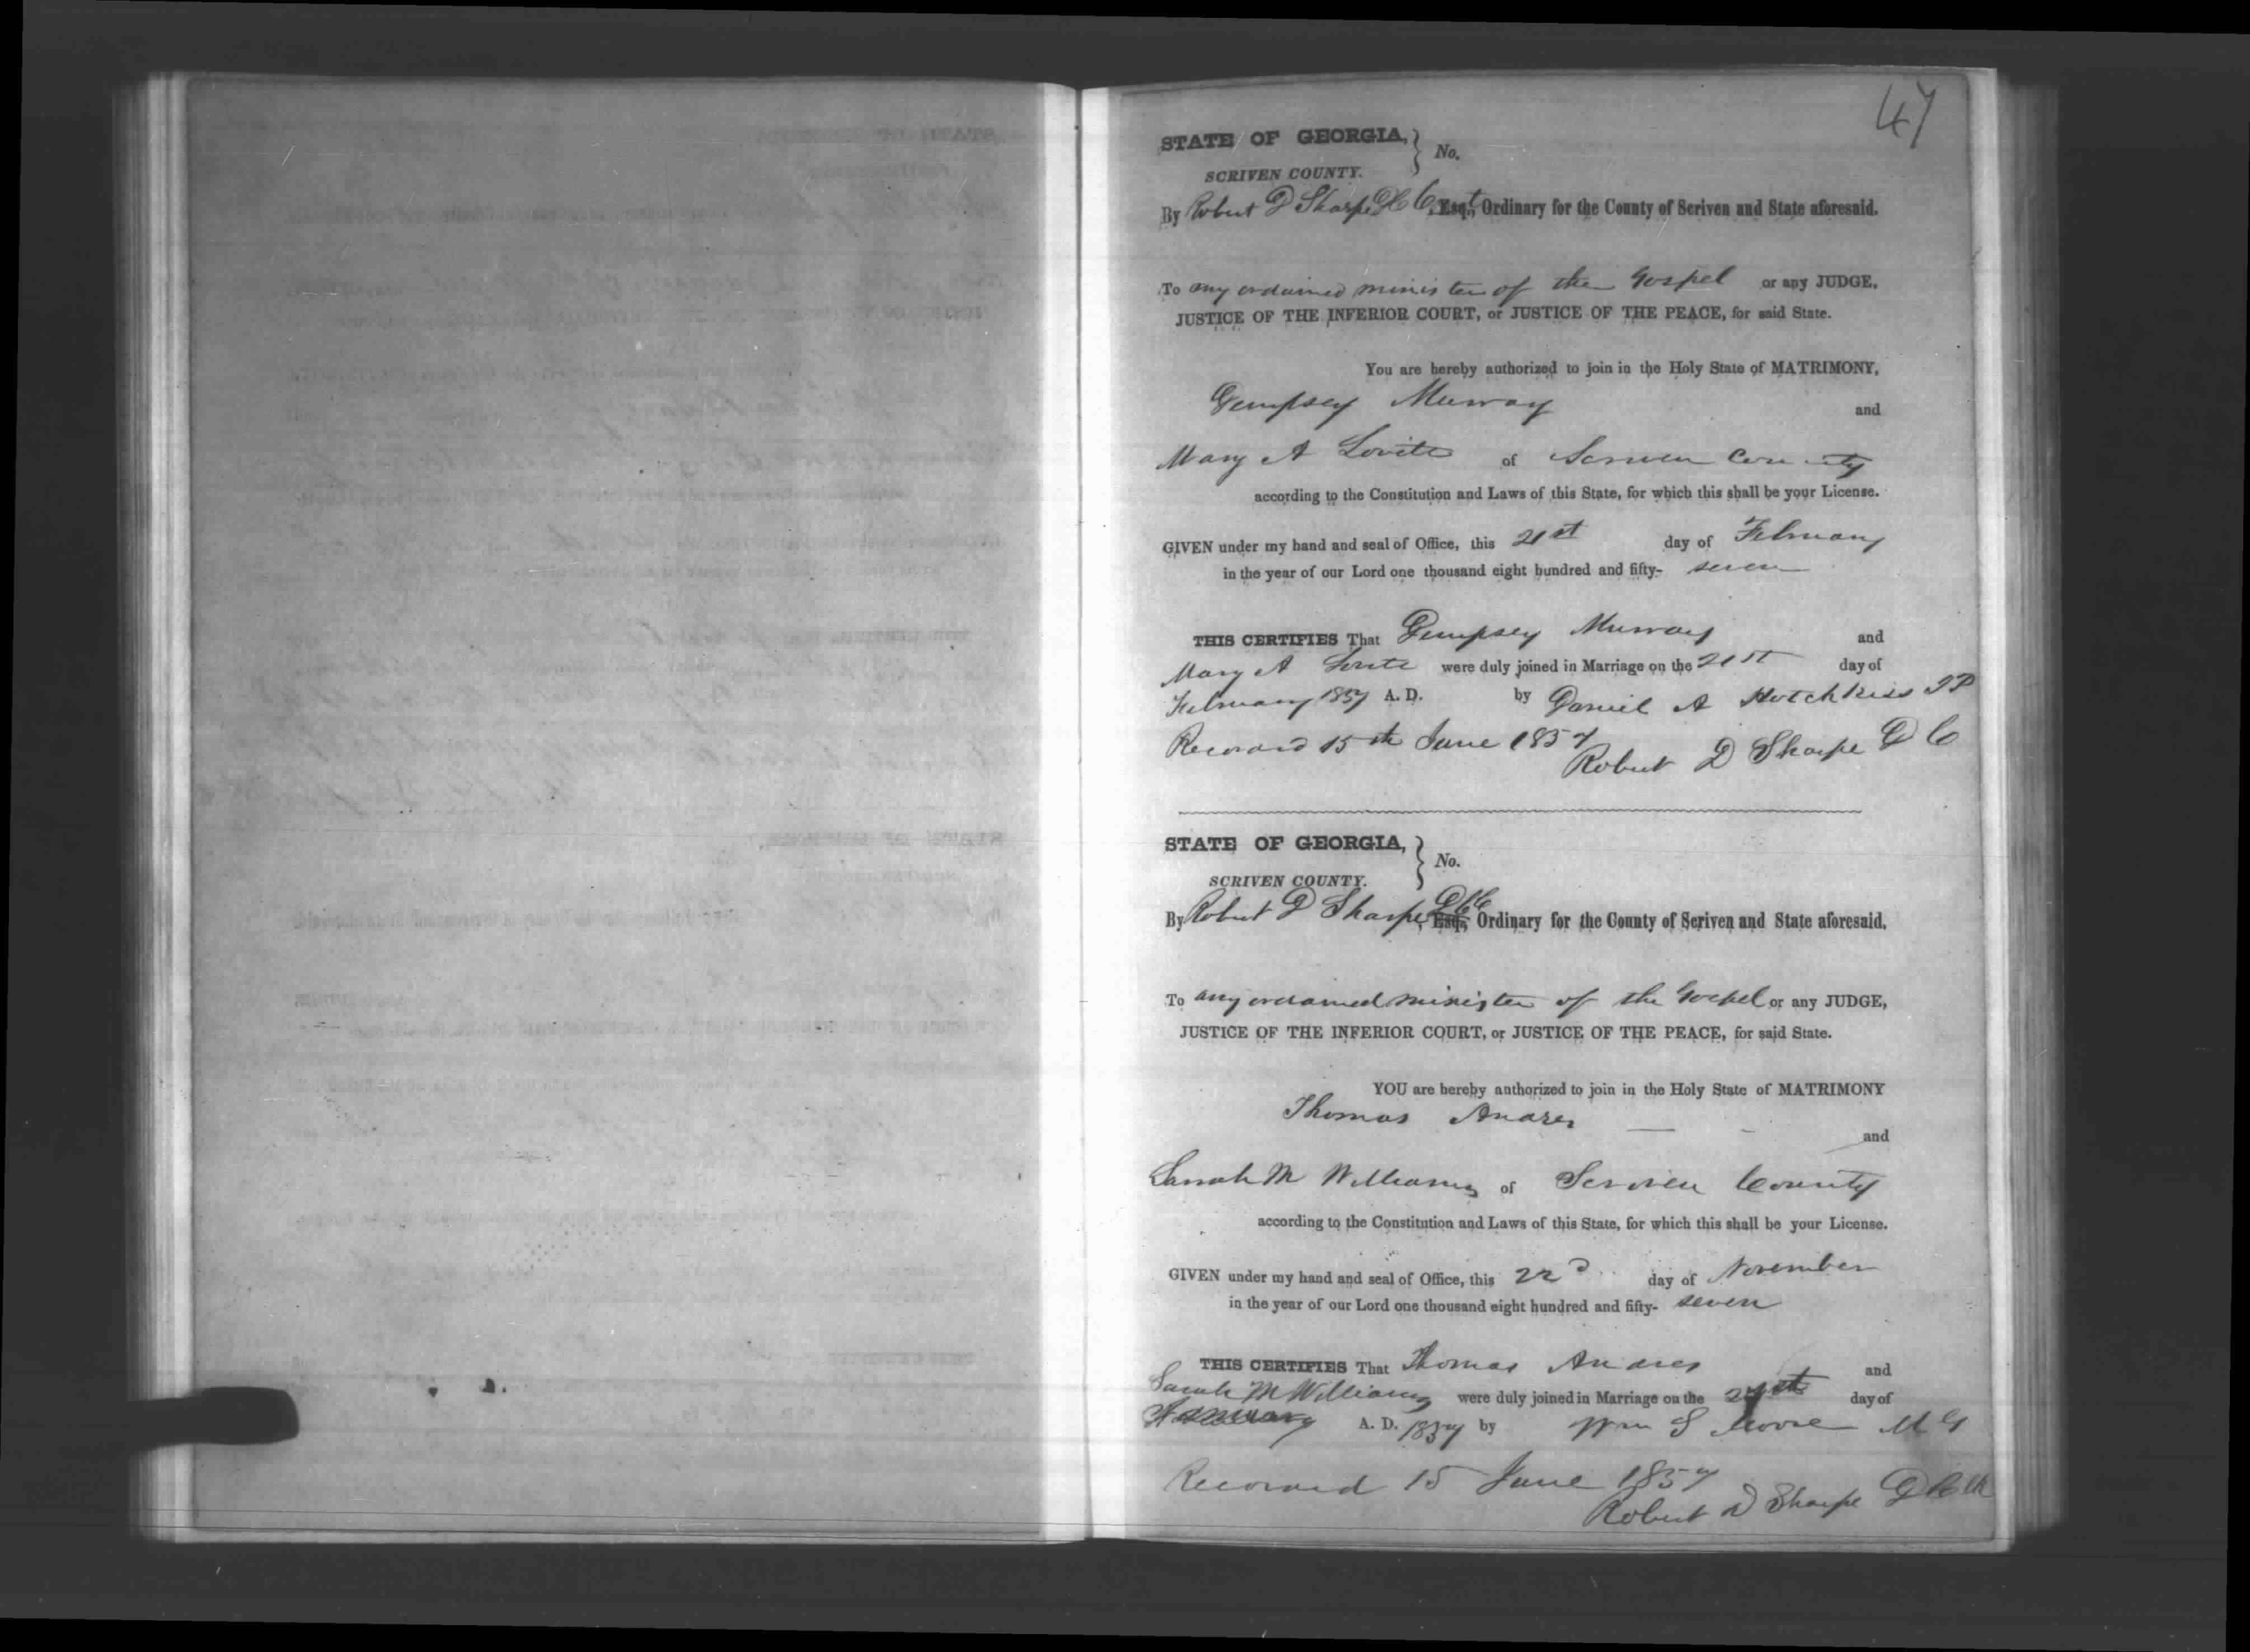 47
STATE OF GEORGIA, } No.
SCRIVEN COUNTY.
By Robert D Sharpe D C Esq., Ordinary for the County of Scriven and State aforesaid.
To any ordained minister of the Gospel or any JUDGE,
JUSTICE OF THE INFERIOR COURT, or JUSTICE OF THE PEACE, for said State.
You are hereby authorized to join in the Holy State of MATRIMONY,
Dempsey Murray and
Mary A Lovite of Scriven County
according to the Constitution and Laws of this State, for which this shall be your License.
GIVEN under my hand and seal of Office, this 21st day of February
in the year of our Lord one thousand eight hundred and fifty- seven
THIS CERTIFIES That Dempsey Murray and
Mary A were duly joined in Marriage on the 21st day of
February 1857 A. D. by Daniel A Hotchkiss JP
Record 15th June 1857
Robert D Sharpe D C
STATE OF GEORGIA, } No.
SCRIVEN COUNTY.
By Robert D Sharpe Esq., Ordinary for the County of Scriven and State aforesaid.
To any ordained minister of the Gospel or any JUDGE,
JUSTICE OF THE INFERIOR COURT, or JUSTICE OF THE PEACE, for said State.
YOU are hereby authorized to join in the Holy State of MATRIMONY
Thomas and
Sarah M Williams of Scriven County
according to the Constitution and Laws of this State, for which this shall be your License.
GIVEN under my hand and seal of Office, this 22d day of November
in the year of our Lord one thousand eight hundred and fifty- seven
THIS CERTIFIES That Thomas and
Sarah M Williams were duly joined in Marriage on the day of
A. D. 1857 by Wm S Moore M G
Record 15 June 1857
Robert D Sharpe